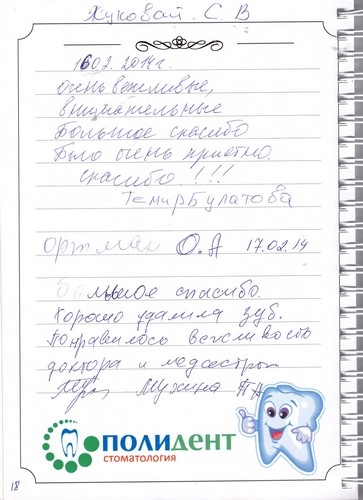 Жуковай. С. В
1602. 2014г.
очень вежливые,
внимательные
Большое спасибо
Было очень приятно.
спасибо!!!
Темирбулатова
ортман О.А 17.02.14
Большое спасибо.
Хорошо удалила зуб.
Понравилось вежливость
доктора и медсестры
Мухина
ПОЛИДЕНТ
СТОМАТОЛОГИЯ
18